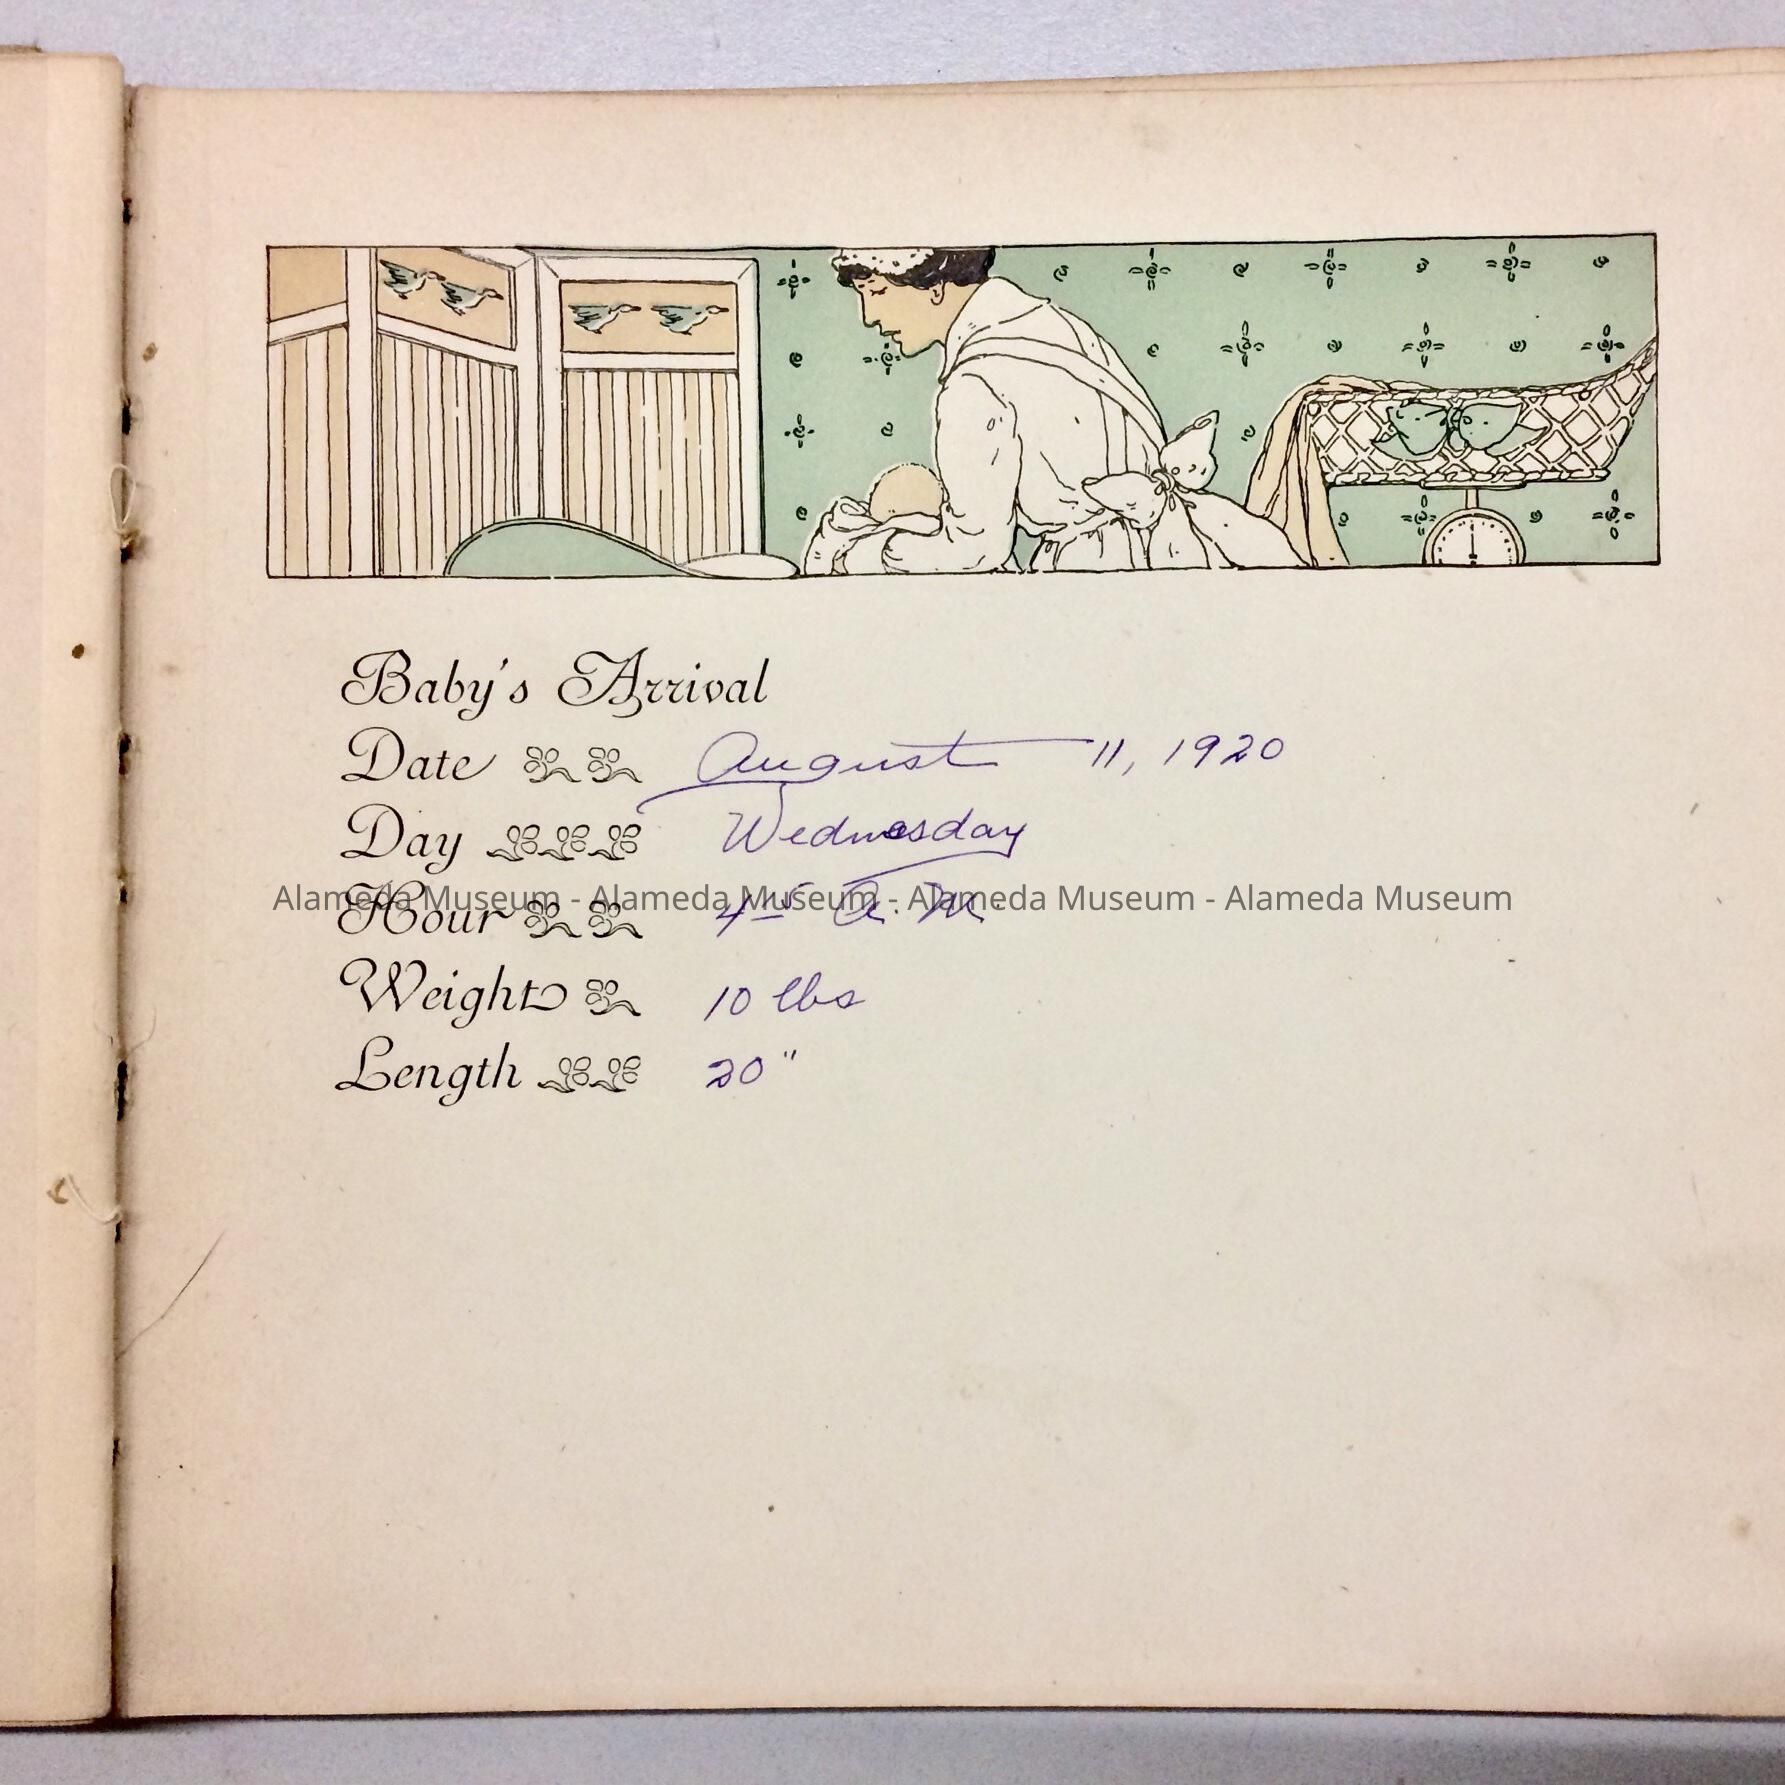 Baby's Arrival
Date August 11, 1920
Day Wednesday
Alameda Museum - Alameda Museum - Alameda Museum - Alameda Museum
Hour 4 15 A. M.
Weight 10 lbs
Length 20"